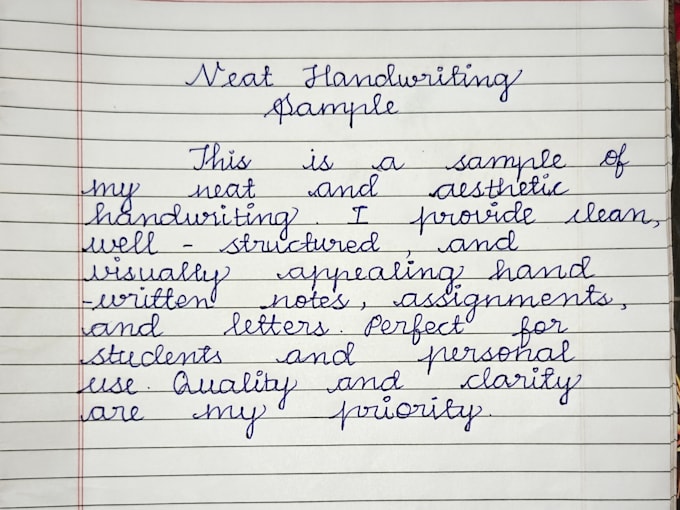 Neat Handwriting
Sample
This is a sample of
my neat and aesthetic
handwriting. I provide clean,
well - structured, and
visually appealing hand
-written notes, assignments,
and letters. Perfect for
students and personal
use. Quality and clarity
are my priority.